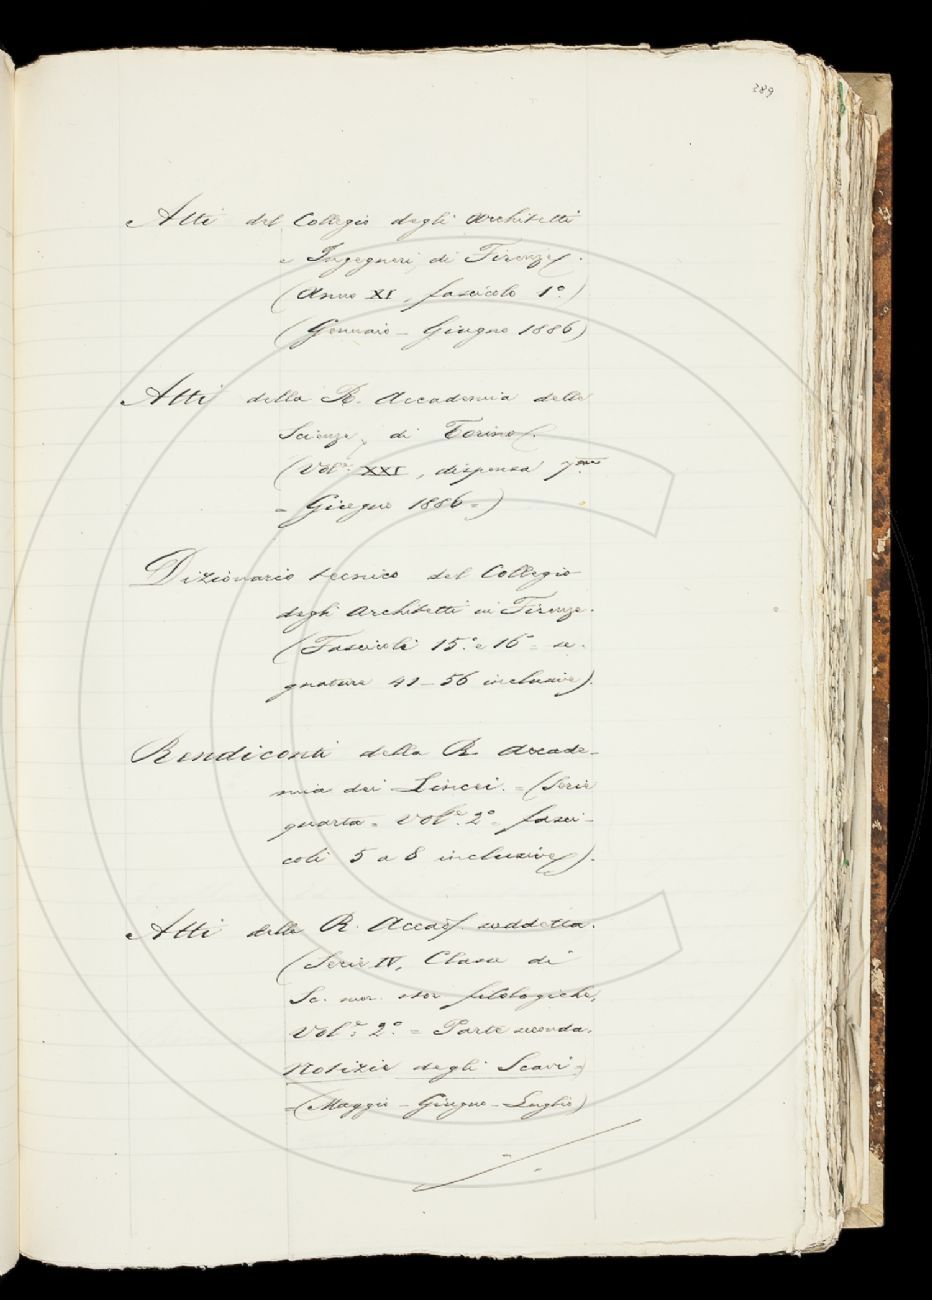 289
Atti del Collegio degli Architetti
e Ingegneri di Firenze.
(Anno XI, fascicolo 1°.)
(Gennaio - Giugno 1886)
Atti della R. Accademia delle
Scienze, di Torino.
(Vol.e XXI, dispensa 7ma
= Giugno 1886 =)
Dizionario tecnico del Collegio
degli Architetti in Firenze.
(Fascicoli 15.° e 16° = se-
gnature 41 - 56 inclusive).
Rendiconti della R. Accade-
mia dei Lincei. = (Serie
quarta = Vol.e 2° = fasci-
coli 5 a 8 inclusive).
Atti della R. Accad. suddetta.
(Serie IV, Classe di
Sc. mor. stor. filologiche,
Vol.e 2.° = Parte seconda.
Notizie degli Scavi =)
(Maggio - Giugno - Luglio)